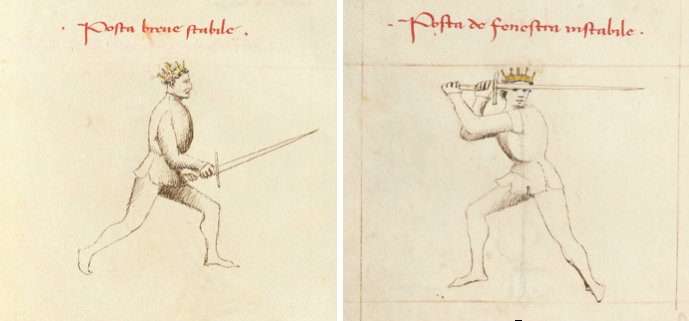 · Posta breue stabile ·
· Posta de fenestra instabile ·